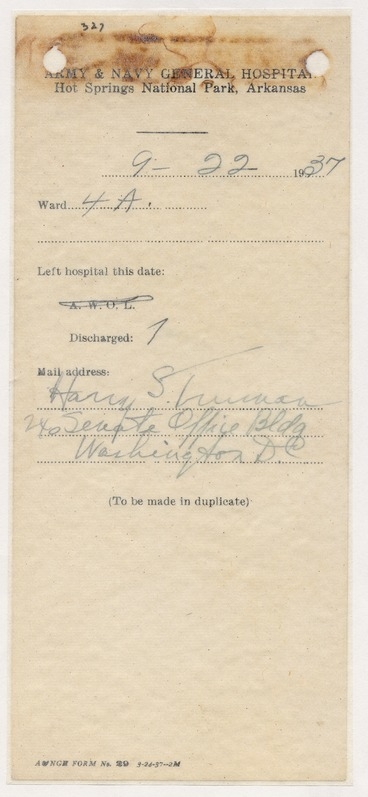 327
ARMY & NAVY GENERAL HOSPITAL
Hot Springs National Park, Arkansas
9- 22 1937
Ward 4 A.
Left hospital this date:
A. W. O. L.
Discharged: 1
Mail address:
Harry S. Truman
240 Senate Office Bldg
Washington D.C
(To be made in duplicate)
A&NGH FORM No. 29 3-24-37--2M